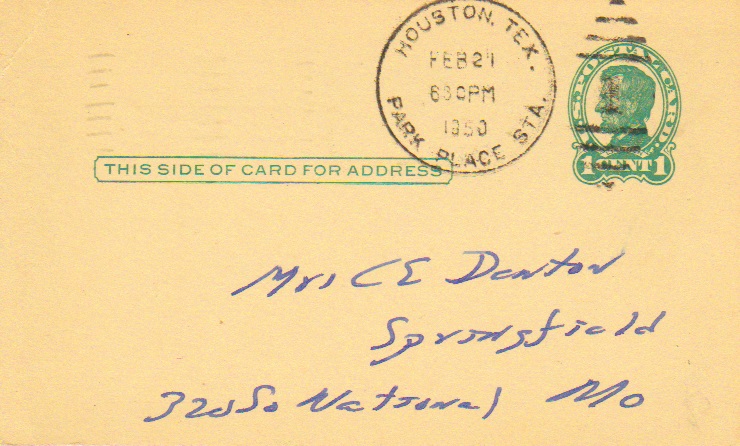 HOUSTON, TEX.
FEB 21
630PM
1950
PARK PLACE STA.
U.S. POSTAL CARD
1 CENT 1
THIS SIDE OF CARD FOR ADDRESS
Mrs C E Denton
Springfield
320 So National Mo